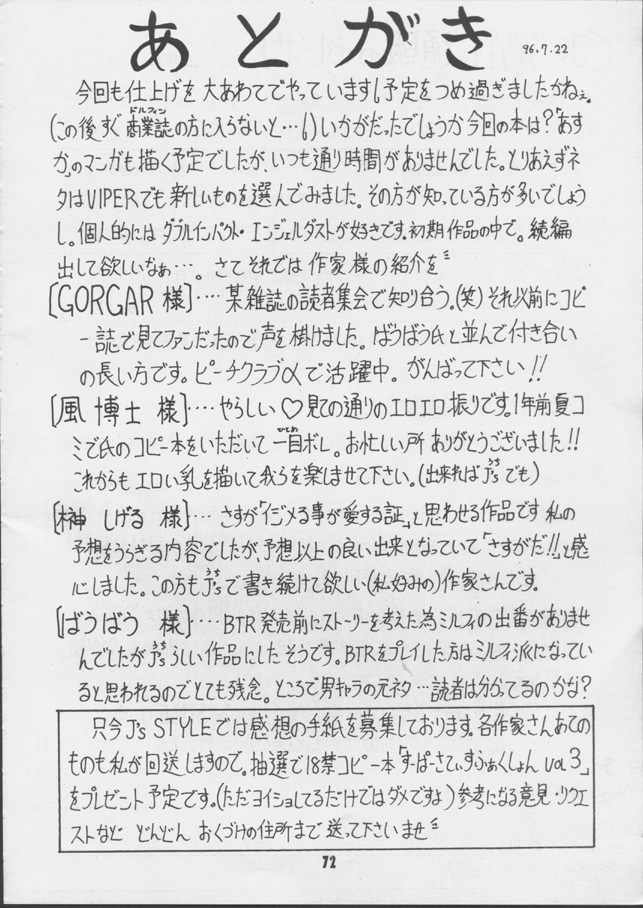 あとがき
96.7.22
今回も仕上げを大あわてでやっています!予定をつめ過ぎましたかねぇ。
(この後すぐ商業誌の方に入らないと…!)いかがだったでしょうか今回の本は?「あす
ドルフィン
か」のマンガも描く予定でしたが、いつも通り時間がありませんでした。とりあえずネ
タはVIPERでも新しいものを選んでみました。その方が知っている方が多いでしょう
し。個人的にはダブルインパクト・エンジェルダストが好きです。初期作品の中で。続編
出して欲しいなぁ…。さてそれでは作家様の紹介を
[GORGAR 様]‥‥某雑誌の読者集会で知り合う。(笑)それ以前にコピ
ー誌で見てファンだったので声を掛けました。ばうばう氏と並んで付き合い
の長い方です。ピーチクラブαで活躍中。がんばって下さい!!
[風 博士 様]‥‥やらしい♡見ての通りのエロエロ振りです。1年前夏コ
ミで氏のコピー本をいただいて一目ボレ。お忙しい所ありがとうございました!!
ひとめ
これからもエロい乳を描いて我らを楽しませて下さい。(出来ればJ'sでも)
うち
[榊 しげる 様]‥‥さすが「イジメる事が愛する証」と思わせる作品です 私の
予想をうらぎる内容でしたが、予想以上の良い出来となっていて「さすがだ!!」と感
心しました。この方もJ'sで書き続けて欲しい(私好みの)作家さんです。
うち
[ばうばう 様]‥‥BTR発売前にストーリーを考えた為ミルフィの出番がありませ
んでしたがJ'sらしい作品にしたそうです。BTRをプレイした方はミルフィ派になってい
うち
ると思われるのでとても残念。ところで男キャラの元ネタ…読者は分かってるのかな?
只今J's STYLEでは感想の手紙を募集しております。各作家さんあての
ものも私が回送しますので。抽選で18禁コピー本「すーぱーさてぃすふぁくしょん vol 3」
をプレゼント予定です。(ただヨイショしてるだけではダメですよ)参考になる意見・リクエ
ストなど どんどん おくづけの住所まで送って下さいませ
72